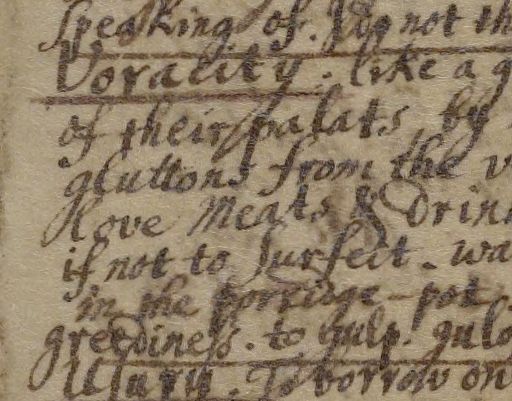 speaking of. I do not th
Voracity. like a g
of their palats by
gluttons from the v
love Meats & Drin
if not to surfeit. wa
in the porridge-pot
greediness. to gulp. gulo
Usury. To borrow on